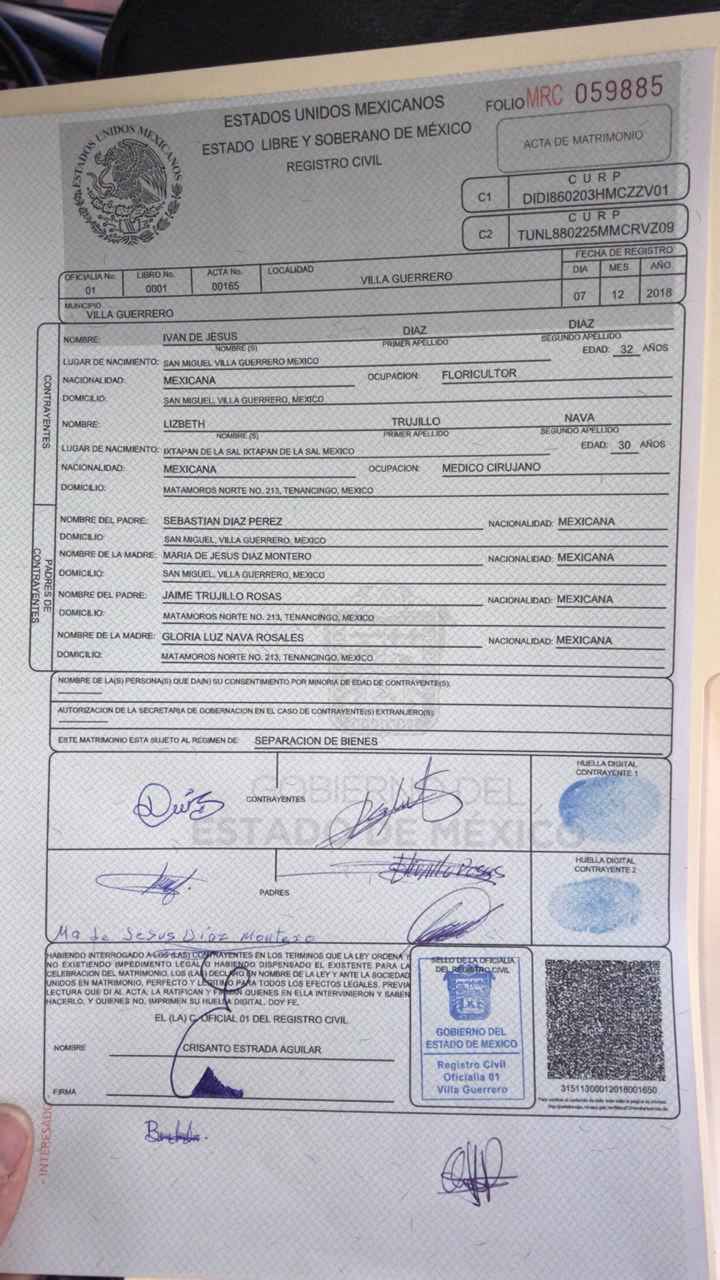 ESTADOS UNIDOS MEXICANOS
ESTADOS UNIDOS MEXICANOS
ESTADO LIBRE Y SOBERANO DE MÉXICO
REGISTRO CIVIL
FOLIO MRC 059885
ACTA DE MATRIMONIO
C1 CURP DIDI860203HMCZZV01
C2 CURP TUNL880225MMCRVZ09
OFICIALIA No. 01 LIBRO No. 0001 ACTA No. 00165 LOCALIDAD VILLA GUERRERO
FECHA DE REGISTRO
DIA MES AÑO
07 12 2018
MUNICIPIO VILLA GUERRERO
CONTRAYENTES
NOMBRE: IVAN DE JESUS DIAZ DIAZ
NOMBRE (S) PRIMER APELLIDO SEGUNDO APELLIDO
LUGAR DE NACIMIENTO: SAN MIGUEL VILLA GUERRERO MEXICO EDAD: 32 AÑOS
NACIONALIDAD: MEXICANA OCUPACION: FLORICULTOR
DOMICILIO: SAN MIGUEL, VILLA GUERRERO, MEXICO
NOMBRE: LIZBETH TRUJILLO NAVA
NOMBRE (S) PRIMER APELLIDO SEGUNDO APELLIDO
LUGAR DE NACIMIENTO: IXTAPAN DE LA SAL IXTAPAN DE LA SAL MEXICO EDAD: 30 AÑOS
NACIONALIDAD: MEXICANA OCUPACION: MEDICO CIRUJANO
DOMICILIO: MATAMOROS NORTE NO. 213, TENANCINGO, MEXICO
PADRES DE CONTRAYENTES
NOMBRE DEL PADRE: SEBASTIAN DIAZ PEREZ NACIONALIDAD: MEXICANA
DOMICILIO: SAN MIGUEL, VILLA GUERRERO, MEXICO
NOMBRE DE LA MADRE: MARIA DE JESUS DIAZ MONTERO NACIONALIDAD: MEXICANA
DOMICILIO: SAN MIGUEL, VILLA GUERRERO, MEXICO
NOMBRE DEL PADRE: JAIME TRUJILLO ROSAS NACIONALIDAD: MEXICANA
DOMICILIO: MATAMOROS NORTE NO. 213, TENANCINGO, MEXICO
NOMBRE DE LA MADRE: GLORIA LUZ NAVA ROSALES NACIONALIDAD: MEXICANA
DOMICILIO: MATAMOROS NORTE NO. 213, TENANCINGO, MEXICO
NOMBRE DE LA(S) PERSONA(S) QUE DA(N) SU CONSENTIMIENTO POR MINORIA DE EDAD DE CONTRAYENTE(S):
AUTORIZACION DE LA SECRETARIA DE GOBERNACION EN EL CASO DE CONTRAYENTE(S) EXTRANJERO(S):
ESTE MATRIMONIO ESTA SUJETO AL REGIMEN DE: SEPARACION DE BIENES
GOBIERNO DEL
ESTADO DE MÉXICO
CONTRAYENTES
HUELLA DIGITAL
CONTRAYENTE 1
PADRES
HUELLA DIGITAL
CONTRAYENTE 2
Ma de Jesus Díaz Montero
HABIENDO INTERROGADO A LOS (LAS) CONTRAYENTES EN LOS TERMINOS QUE LA LEY ORDENA Y
NO EXISTIENDO IMPEDIMENTO LEGAL O HABIENDO DISPENSADO EL EXISTENTE PARA LA
CELEBRACION DEL MATRIMONIO, LOS (LAS) DECLARO EN NOMBRE DE LA LEY Y ANTE LA SOCIEDAD
UNIDOS EN MATRIMONIO, PERFECTO Y LEGITIMO PARA TODOS LOS EFECTOS LEGALES, PREVIA
LECTURA QUE DI AL ACTA, LA RATIFICAN Y FIRMAN QUIENES EN ELLA INTERVINIERON Y SABEN
HACERLO, Y QUIENES NO, IMPRIMEN SU HUELLA DIGITAL. DOY FE.
EL (LA) C. OFICIAL 01 DEL REGISTRO CIVIL
NOMBRE CRISANTO ESTRADA AGUILAR
FIRMA
SELLO DE LA OFICIALIA
DEL REGISTRO CIVIL
GOBIERNO DEL
ESTADO DE MÉXICO
Registro Civil
Oficialia 01
Villa Guerrero
31511300012018001650
INTERESADO